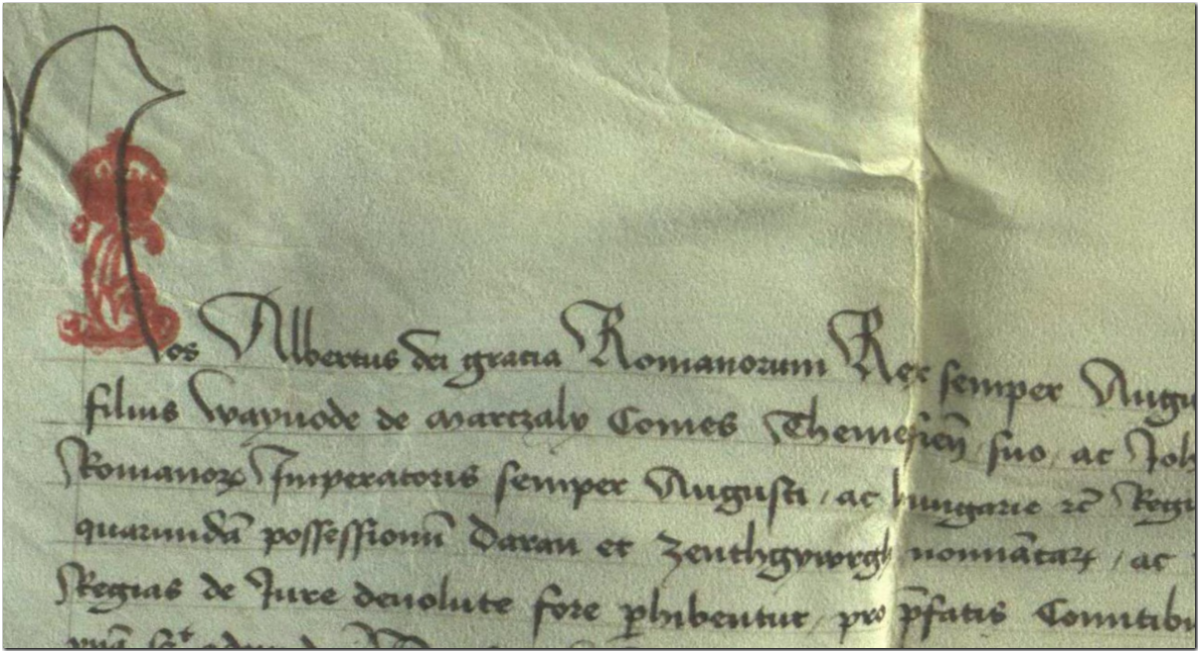 Nos Albertus dei gracia Romanorum Rex semper Augu
filius Wayuode de Marczaly Comes Themesien̄ suo, ac Joh
Romanoꝝ Imperatoris semper Augusti, ac hungarie rc̄ Regi
quarundā possessionū Daran et Zenthgywrgh nom̄ātarꝝ, ac
Regias de Jure deuolute fore ꝑhibentur, pro p̄fatis Comitibu